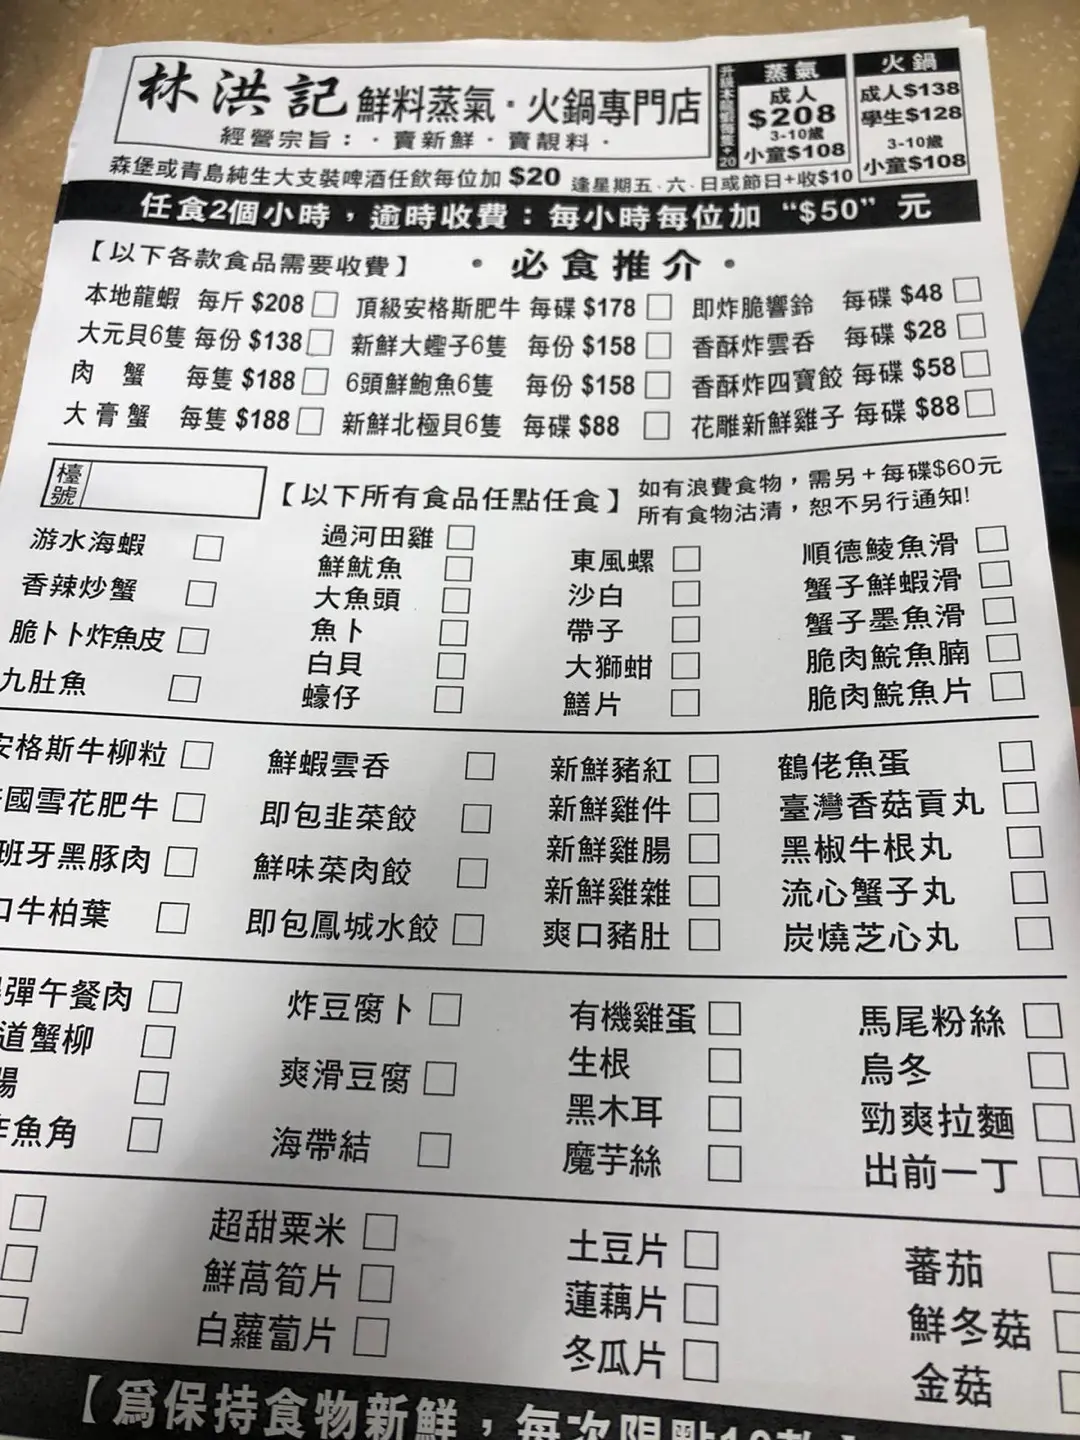 林洪記 鮮料蒸氣·火鍋專門店
經營宗旨：·賣新鮮·賣靚料·
蒸氣
成人
$208
3-10歲
小童$108
火鍋
成人$138
學生$128
3-10歲
小童$108
森堡或青島純生大支裝啤酒任飲每位加 $20 逢星期五、六、日或節日+收$10
任食2個小時，逾時收費：每小時每位加 “$50” 元
【以下各款食品需要收費】 ·必食推介·
本地龍蝦 每斤 $208 □ 頂級安格斯肥牛 每碟 $178 □ 即炸脆響鈴 每碟 $48 □
大元貝6隻 每份 $138 □ 新鮮大蟶子6隻 每份 $158 □ 香酥炸雲吞 每碟 $28 □
肉蟹 每隻 $188 □ 6頭鮮鮑魚6隻 每份 $158 □ 香酥炸四寶餃 每碟 $58 □
大膏蟹 每隻 $188 □ 新鮮北極貝6隻 每碟 $88 □ 花雕新鮮雞子 每碟 $88 □
檯號
【以下所有食品任點任食】
如有浪費食物，需另+每碟$60元
所有食物沽清，恕不另行通知!
游水海蝦 □
香辣炒蟹 □
脆卜卜炸魚皮 □
九肚魚 □
過河田雞 □
鮮魷魚 □
大魚頭 □
魚卜 □
白貝 □
蠔仔 □
東風螺 □
沙白 □
帶子 □
大獅蚶 □
鱔片 □
順德鯪魚滑 □
蟹子鮮蝦滑 □
蟹子墨魚滑 □
脆肉鯇魚腩 □
脆肉鯇魚片 □
安格斯牛柳粒 □
國雪花肥牛 □
班牙黑豚肉 □
口牛柏葉 □
鮮蝦雲吞 □
即包韭菜餃 □
鮮味菜肉餃 □
即包鳳城水餃 □
新鮮豬紅 □
新鮮雞件 □
新鮮雞腸 □
新鮮雞雜 □
爽口豬肚 □
鶴佬魚蛋 □
臺灣香菇貢丸 □
黑椒牛根丸 □
流心蟹子丸 □
炭燒芝心丸 □
彈午餐肉 □
道蟹柳 □
腸 □
炸魚角 □
炸豆腐卜 □
爽滑豆腐 □
海帶結 □
有機雞蛋 □
生根 □
黑木耳 □
魔芋絲 □
馬尾粉絲 □
烏冬 □
勁爽拉麵 □
出前一丁 □
超甜粟米 □
鮮萵筍片 □
白蘿蔔片 □
土豆片 □
蓮藕片 □
冬瓜片 □
蕃茄 □
鮮冬菇 □
金菇 □
【為保持食物新鮮，每次限點10款】